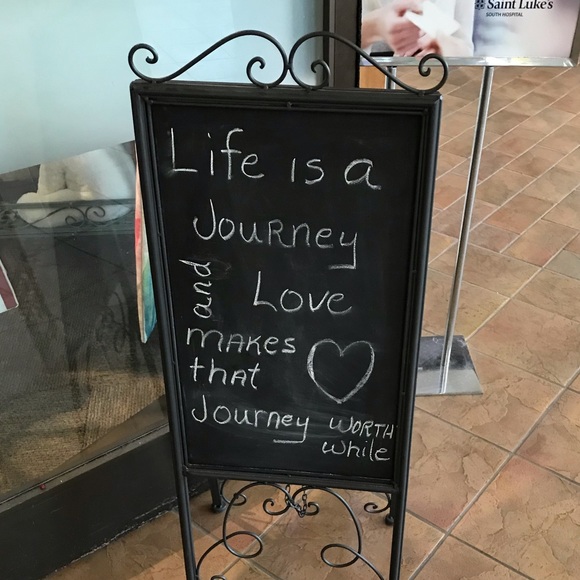 Saint Luke's
SOUTH HOSPITAL
Life is a
Journey
and Love
makes
that
Journey worth
while